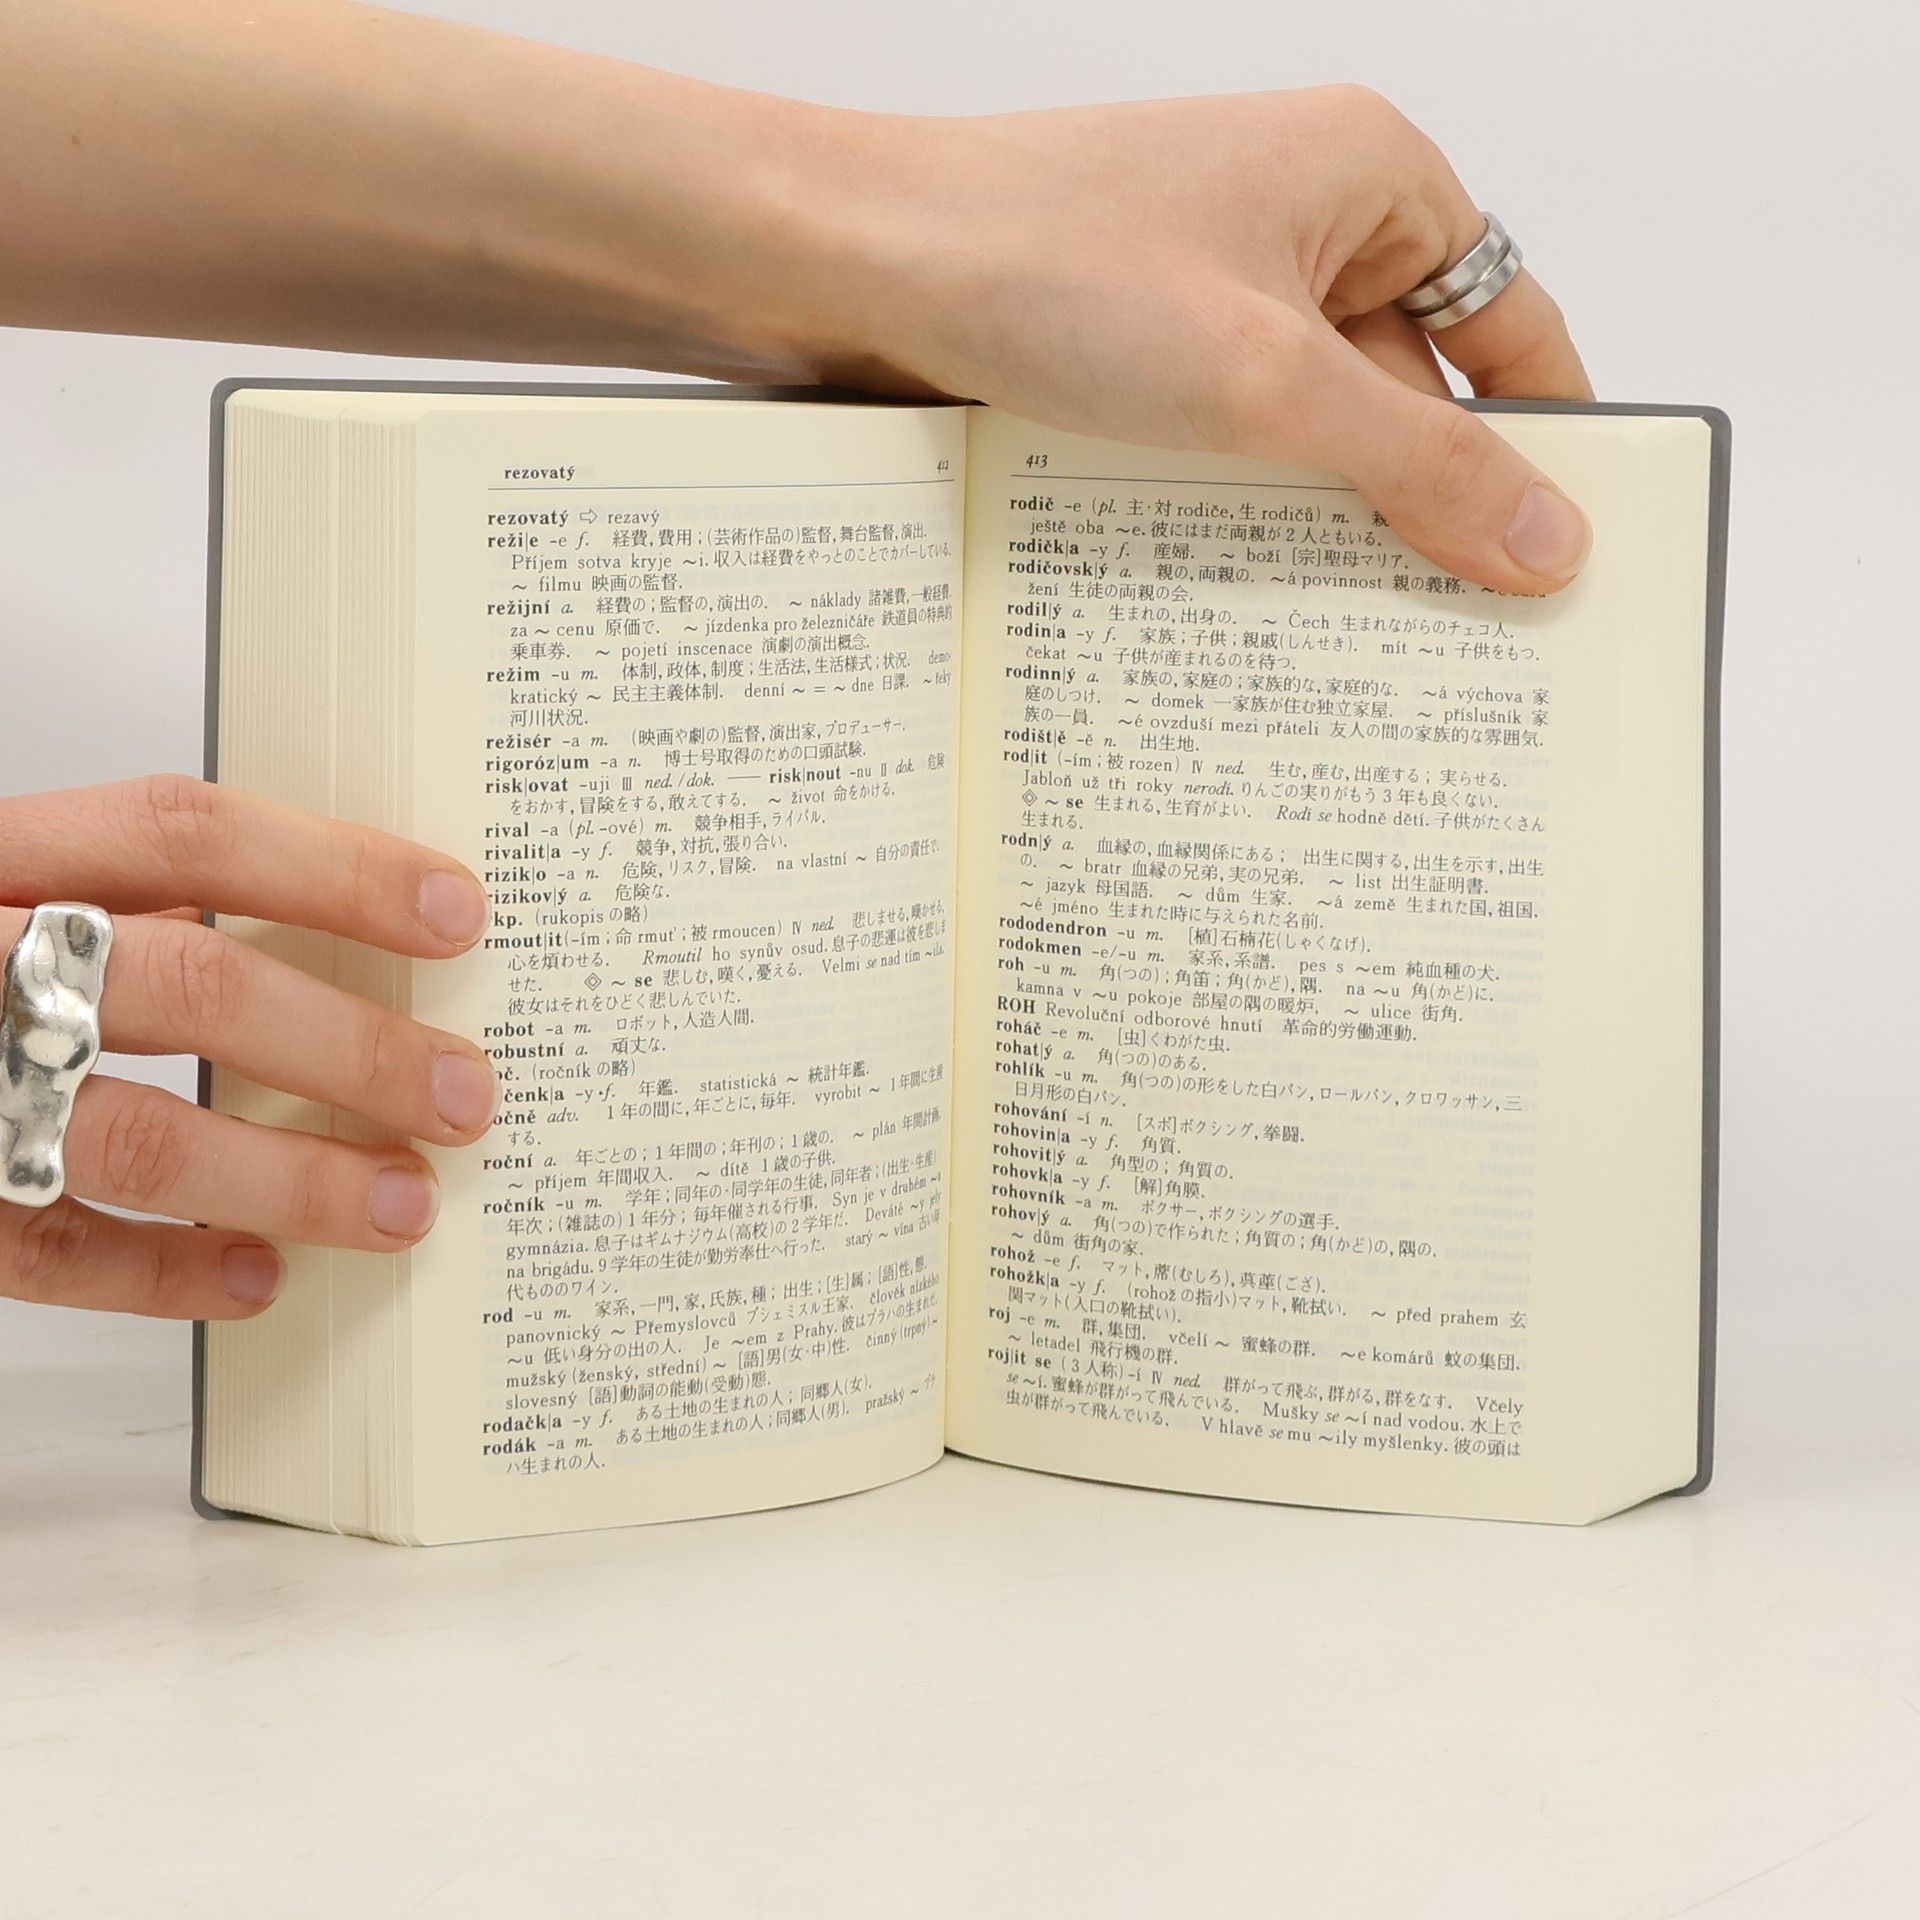 rezovatý 412
rezovatý ⇨ rezavý
reži|e -e f. 経費, 費用 ; (芸術作品の)監督, 舞台監督, 演出.
Příjem sotva kryje ～i. 収入は経費をやっとのことでカバーしている.
～ filmu 映画の監督.
režijní a. 経費の ; 監督の, 演出の. ～ náklady 諸雑費, 一般経費.
za ～ cenu 原価で. ～ jízdenka pro železničáře 鉄道員の特典的
乗車券. ～ pojetí inscenace 演劇の演出概念.
režim -u m. 体制, 政体, 制度 ; 生活法, 生活様式 ; 状況. demo-
kratický ～ 民主主義体制. denní ～ = ～ dne 日課. ～ řeky
河川状況.
režisér -a m. (映画や劇の)監督, 演出家, プロデューサー.
rigoróz|um -a n. 博士号取得のための口頭試験.
risk|ovat -uji Ⅲ ned./dok. —— risk|nout -nu Ⅱ dok. 危険
をおかす, 冒険をする, 敢えてする. ～ život 命をかける.
rival -a (pl. -ové) m. 競争相手, ライバル.
rivalit|a -y f. 競争, 対抗, 張り合い.
rizik|o -a n. 危険, リスク, 冒険. na vlastní ～ 自分の責任で.
rizikov|ý a. 危険な.
kp. (rukopis の略)
rmout|it (-ím ; 命 rmuť ; 被 rmoucen) Ⅳ ned. 悲しませる, 嘆かせる,
心を煩わせる. Rmoutil ho synův osud. 息子の悲運は彼を悲しま
せた. ◈ ～ se 悲しむ, 嘆く, 憂える. Velmi se nad tím ～ila.
彼女はそれをひどく悲しんでいた.
robot -a m. ロボット, 人造人間.
robustní a. 頑丈な.
oč. (ročník の略)
čenk|a -y f. 年鑑. statistická ～ 統計年鑑.
očně adv. 1 年の間に, 年ごとに, 毎年. vyrobit ～ 1 年間に生産
する.
roční a. 年ごとの ; 1 年間の ; 年刊の ; 1 歳の. ～ plán 年間計画.
～ příjem 年間収入. ～ dítě 1 歳の子供.
ročník -u m. 学年 ; 同年の·同学年の生徒, 同年者 ; (出生·生産)
年次 ; (雑誌の) 1 年分 ; 毎年催される行事. Syn je v druhém ～u
gymnázia. 息子はギムナジウム(高校)の 2 学年だ. Deváté ～y jely
na brigádu. 9 学年の生徒が勤労奉仕へ行った. starý ～ vína 古い年
代もののワイン.
rod -u m. 家系, 一門, 家, 氏族, 種 ; 出生 ; [生]属 ; [語]性, 態.
panovnický ～ Přemyslovců プシェミスル王家. člověk nízkého
～u 低い身分の出の人. Je ～em z Prahy. 彼はプラハの生まれだ.
mužský (ženský, střední) ～ [語]男(女·中)性. činný (trpný) ～
slovesný [語]動詞の能動(受動)態.
rodačk|a -y f. ある土地の生まれの人 ; 同郷人(女).
rodák -a m. ある土地の生まれの人 ; 同郷人(男). pražský ～ プラ
ハ生まれの人.
413
rodič -e (pl. 主·対 rodiče, 生 rodičů) m. 親
ještě oba ～e. 彼にはまだ両親が 2 人ともいる.
rodičk|a -y f. 産婦. ～ boží [宗]聖母マリア.
rodičovsk|ý a. 親の, 両親の. ～á povinnost 親の義務.
žení 生徒の両親の会.
rodil|ý a. 生まれの, 出身の. ～ Čech 生まれながらのチェコ人.
rodin|a -y f. 家族 ; 子供 ; 親戚(しんせき). mít ～u 子供をもつ.
čekat ～u 子供が産まれるのを待つ.
rodinn|ý a. 家族の, 家庭の ; 家族的な, 家庭的な. ～á výchova 家
庭のしつけ. ～ domek 一家族が住む独立家屋. ～ příslušník 家
族の一員. ～é ovzduší mezi přáteli 友人の間の家族的な雰囲気.
rodišt|ě -ě n. 出生地.
rod|it (-ím ; 被 rozen) Ⅳ ned. 生む, 産む, 出産する ; 実らせる.
Jabloň už tři roky nerodí. りんごの実りがもう 3 年も良くない.
◈ ～ se 生まれる, 生育がよい. Rodí se hodně dětí. 子供がたくさん
生まれる.
rodn|ý a. 血縁の, 血縁関係にある ; 出生に関する, 出生を示す, 出生
の. ～ bratr 血縁の兄弟, 実の兄弟. ～ list 出生証明書.
～ jazyk 母国語. ～ dům 生家. ～á země 生まれた国, 祖国.
～é jméno 生まれた時に与えられた名前.
rododendron -u m. [植]石楠花(しゃくなげ).
rodokmen -e/-u m. 家系, 系譜. pes s ～em 純血種の犬.
roh -u m. 角(つの) ; 角笛 ; 角(かど), 隅. na ～u 角(かど)に.
kamna v ～u pokoje 部屋の隅の暖炉. ～ ulice 街角.
ROH Revoluční odborové hnutí 革命的労働運動.
roháč -e m. [虫]くわがた虫.
rohat|ý a. 角(つの)のある.
rohlík -u m. 角(つの)の形をした白パン, ロールパン, クロワッサン, 三
日月形の白パン.
rohování -í n. [スポ]ボクシング, 拳闘.
rohovin|a -y f. 角質.
rohovit|ý a. 角型の ; 角質の.
rohovk|a -y f. [解]角膜.
rohovník -a m. ボクサー, ボクシングの選手.
rohov|ý a. 角(つの)で作られた ; 角質の ; 角(かど)の, 隅の.
～ dům 街角の家.
rohož -e f. マット, 蓆(むしろ), 茣蓙(ござ).
rohožk|a -y f. (rohož の指小)マット, 靴拭い. ～ před prahem 玄
関マット(入口の靴拭い).
roj -e m. 群, 集団. včelí ～ 蜜蜂の群. ～e komárů 蚊の集団.
～ letadel 飛行機の群.
roj|it se (3 人称) -í Ⅳ ned. 群がって飛ぶ, 群がる, 群をなす. Včely
se ～í. 蜜蜂が群がって飛んでいる. Mušky se ～í nad vodou. 水上で
虫が群がって飛んでいる. V hlavě se mu ～ily myšlenky. 彼の頭は